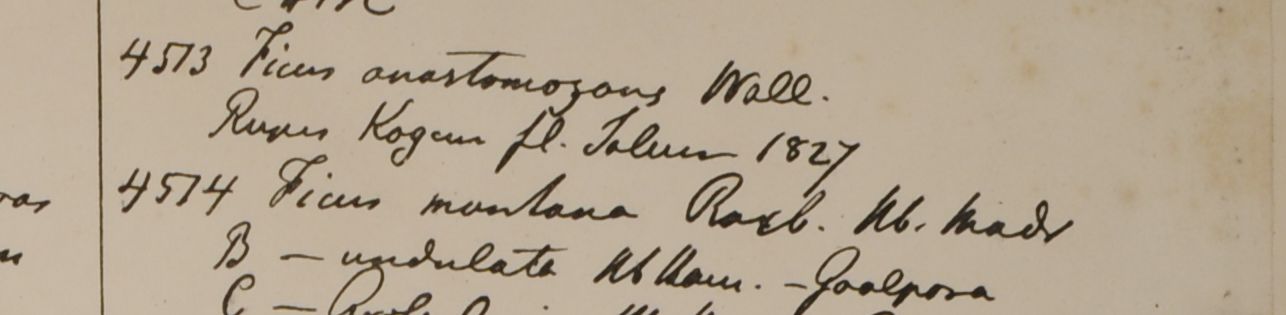 4513 Ficus anastomozans Wall.
Rupes Kogun fl. Saluen 1827
4514 Ficus montana Roxb. Hb. Madr
B – undulata Hb Ham. – Goalpora
C –